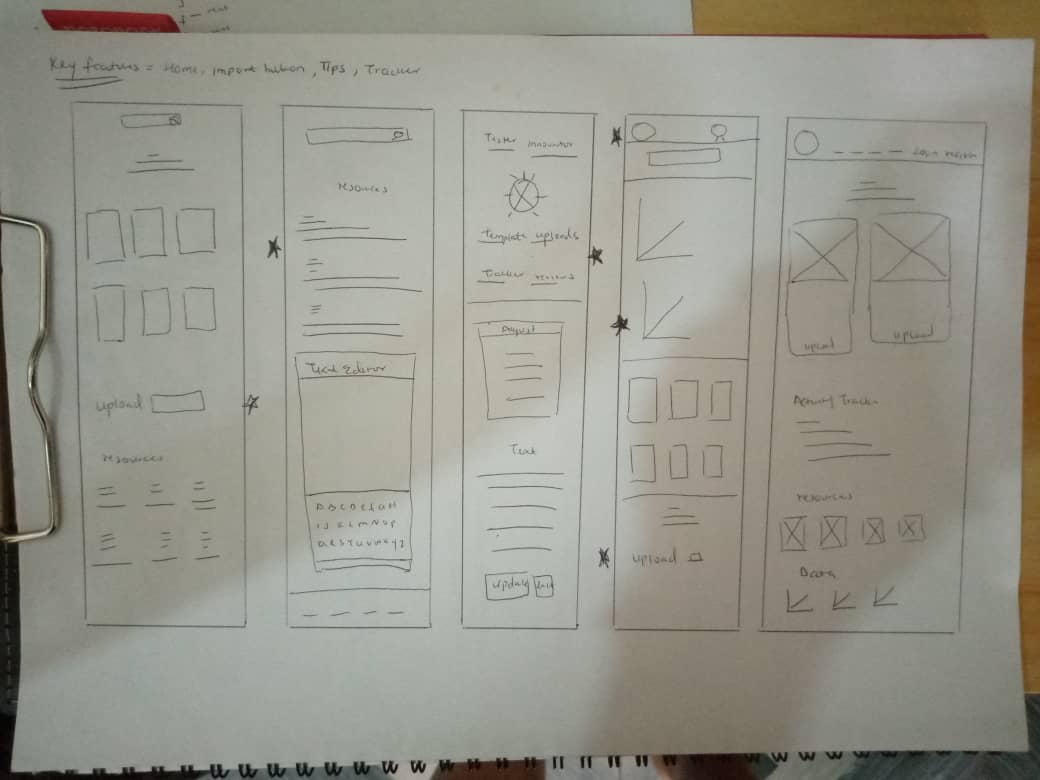 Key features = Home, import button, Tips, Tracker
upload
resources
resources
Text Editor
A B C D E F G H
I J K L M N O P
Q R S T U V W X Y Z
Tester innovator
Template uploads
Tracker reviews
August
Text
Update
upload
upload
upload
Activity Tracker
resources
Data